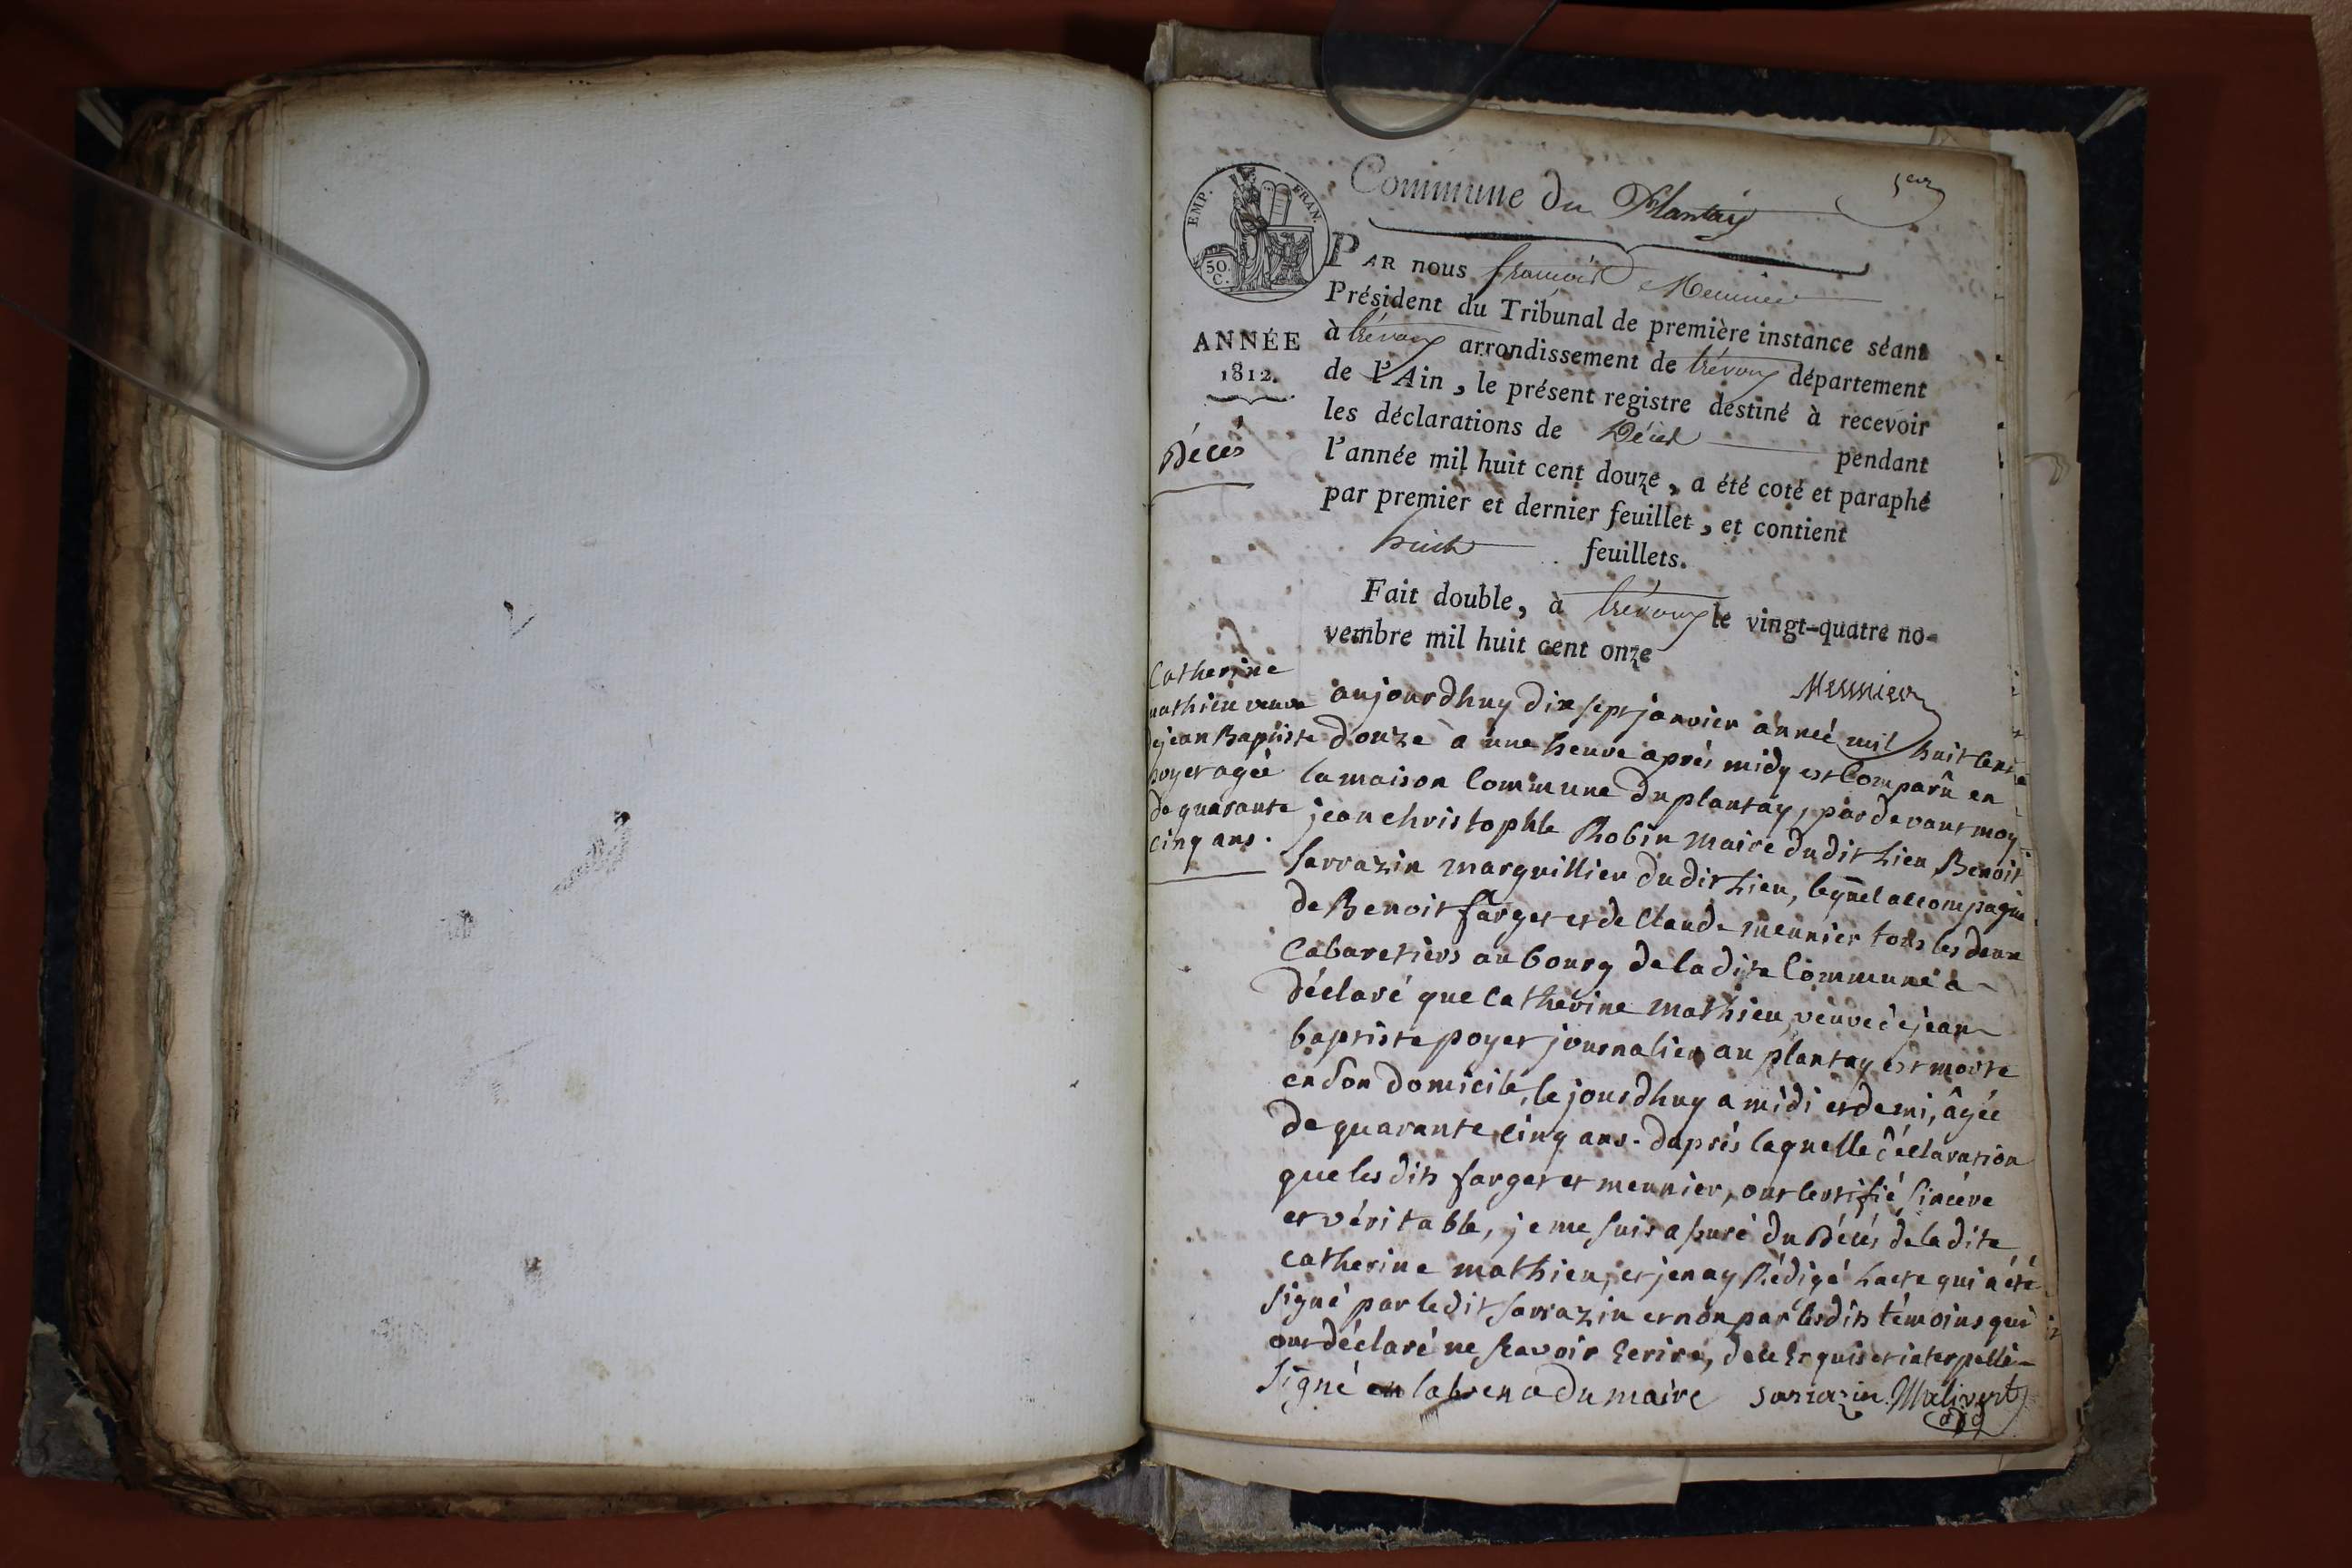 Commune du Plantay
1er
EMP. FRAN.
50.
C.
PAR nous françois Meunier
Président du Tribunal de première instance séant
à trévoux arrondissement de trévoux département
de l'Ain, le présent registre destiné à recevoir
les déclarations de Décès pendant
l'année mil huit cent douze, a été coté et paraphé
par premier et dernier feuillet, et contient
huit feuillets.
Fait double, à trévoux le vingt-quatre no-
vembre mil huit cent onze
Meunier
ANNÉE
1812.
Décès
Catherine
mathieu veuve
de jean Baptiste
poyet agée
de quarante
cinq ans.
aujourdhuy dix sept janvier année mil huit cent
douze à une heure après midy est Comparû en
la maison Commune du plantay, pardevant moy
jean christophle Robin maire dudit Lieu Benoit
Sarrazin marguillier dudit Lieu, lequel accompagné
de Benoit farget et de Claude meunier tous les deux
Cabaretiers au bourg de ladite Commune a
déclaré que Catherine mathieu, veuve de jean
baptiste poyet journalier au plantay est morte
en son domicile, le jourdhuy a midi et demi, âgée
de quarante cinq ans. daprès laquelle déclaration
que les dits farget et meunier, ont Certifié Sincère
et véritable, je me suis assuré du Décès de la dite
catherine mathieu, et jen ay Rédigé Lacte qui a été
signé par le dit sarrazin et non par lesdits témoins qui
ont déclaré ne scavoir Ecrire, de ce Enquis et interpellé
Signé en labsence du maire sarrazin Malivert
adj